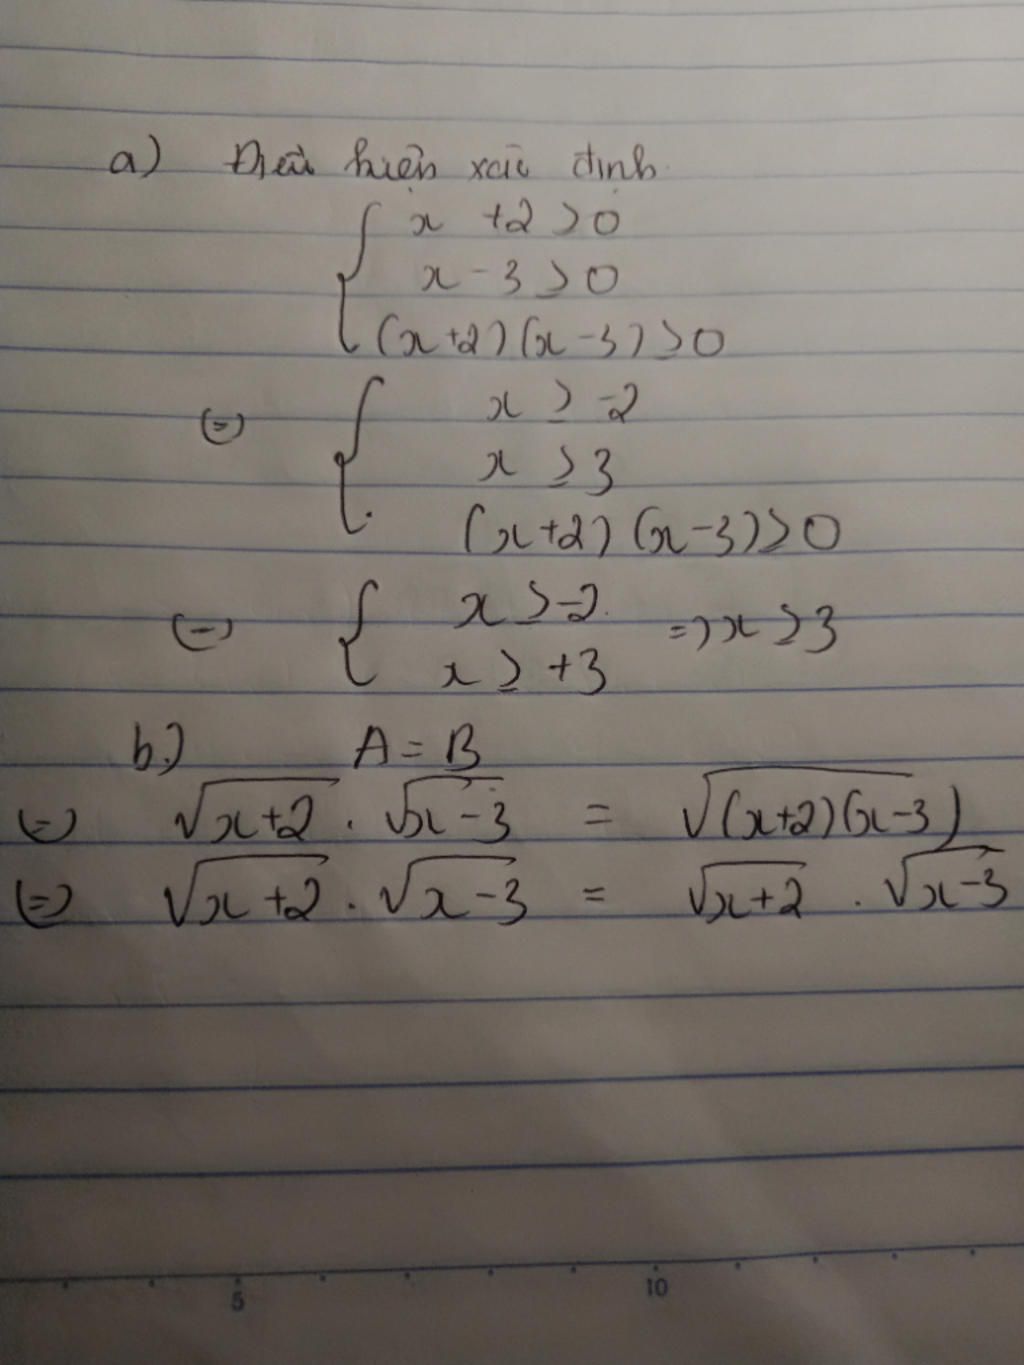 a) Điều kiện xác định
{ x + 2 ≥ 0
x - 3 ≥ 0
(x+2)(x-3) ≥ 0
(=) { x ≥ -2
x ≥ 3
(x+2)(x-3) ≥ 0
(=) { x ≥ -2 => x ≥ 3
x ≥ +3
b.) A = B
(=) √x+2 . √x-3 = √(x+2)(x-3)
(=) √x+2 . √x-3 = √x+2 . √x-3
5 10